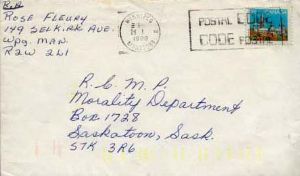 Rose Fleury
149 Selkirk Ave.
Wpg. Man.
R2W 2L1
WINNIPEG
1990
MANITOBA
POSTAL CODE
CODE POSTAL
R.C.M.P.
Morality Department
Box 1728
Saskatoon, Sask.
S7K 3R6